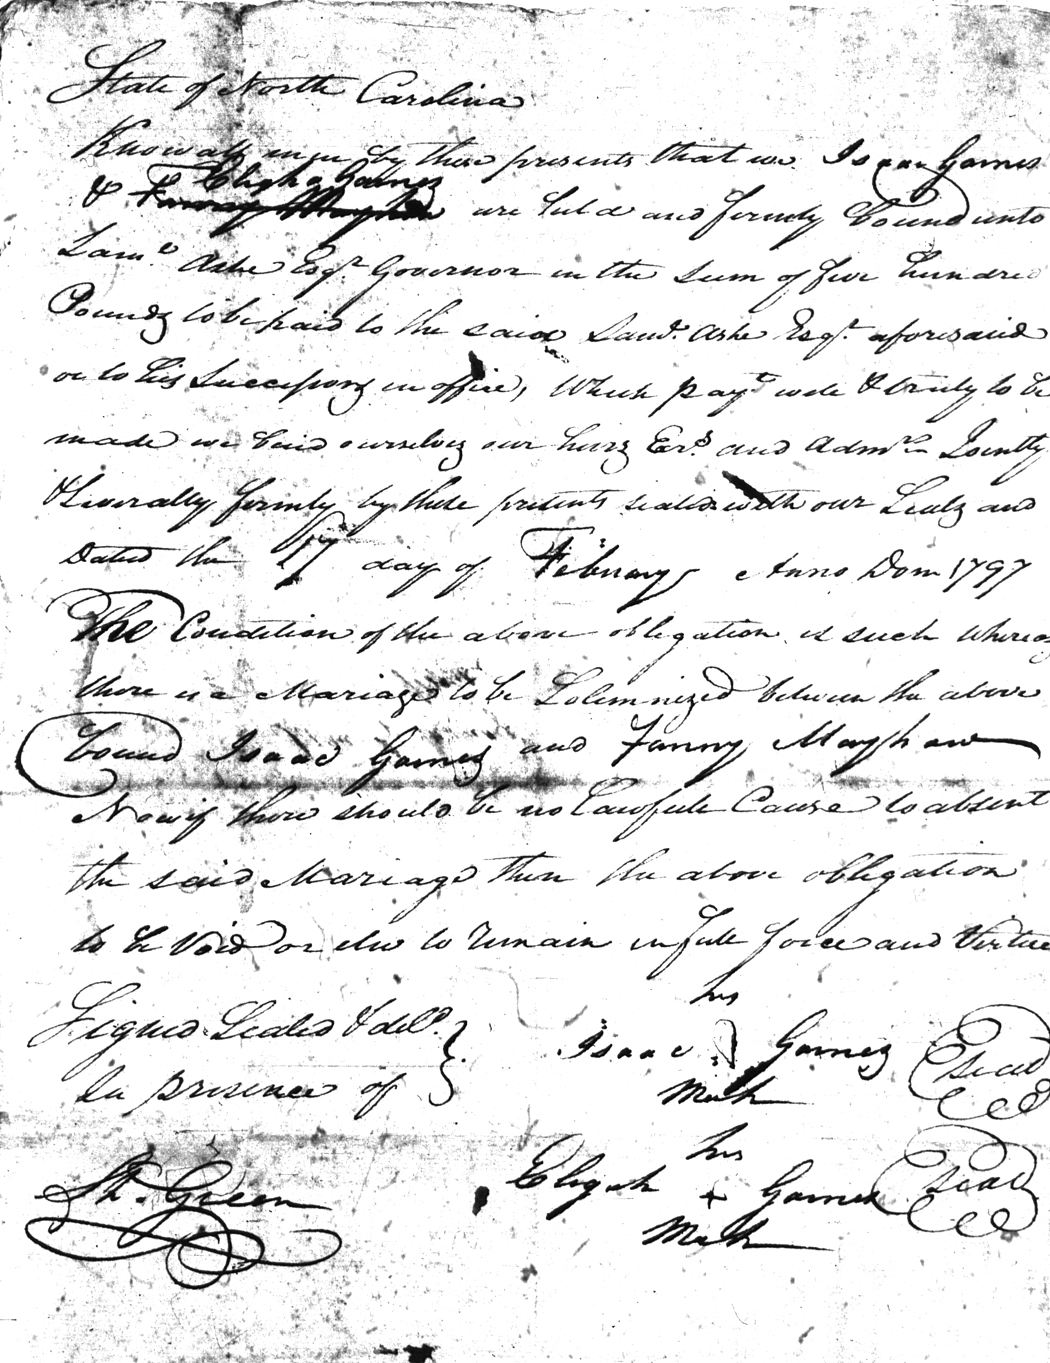 State of North Carolina
Know all men by these presents that we Isaac Games
Eligha Games
& Fanny Mayhaw are held and firmly bound unto
Sam.l Ashe Esq.r Governor in the sum of five hundred
Pounds to be paid to the said Sam.l Ashe Esq.r aforesaid
or to his Successors in office, Which paym.t well & truly to be
made we bind ourselves our heirs Ex.rs and Adm.rs Jointly
& Severally firmly by these presents sealed with our Seals and
Dated the 17 day of February Anno Dom 1797
The Condition of the above obligation is such Whereas
there is a Mariage to be Solemnized between the above
bound Isaac Games and Fanny Mayhaw
Now if there should be no Lawfull Cause to absent
the said Mariage then the above obligation
to be Void or else to remain in full force and Virtue
Signed Sealed & del.d
In presence of
his
Isaac Games Seal
Mark
his
Eligah + Games Seal
Mark
Green